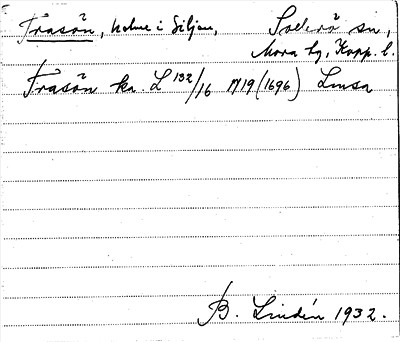 Frasön, holme i Siljan, Sollerö sn,
Mora tg, Kopp. l.
Frasön ka. L 132/16 M19 (1696) Lmsa
B. Lindén 1932.